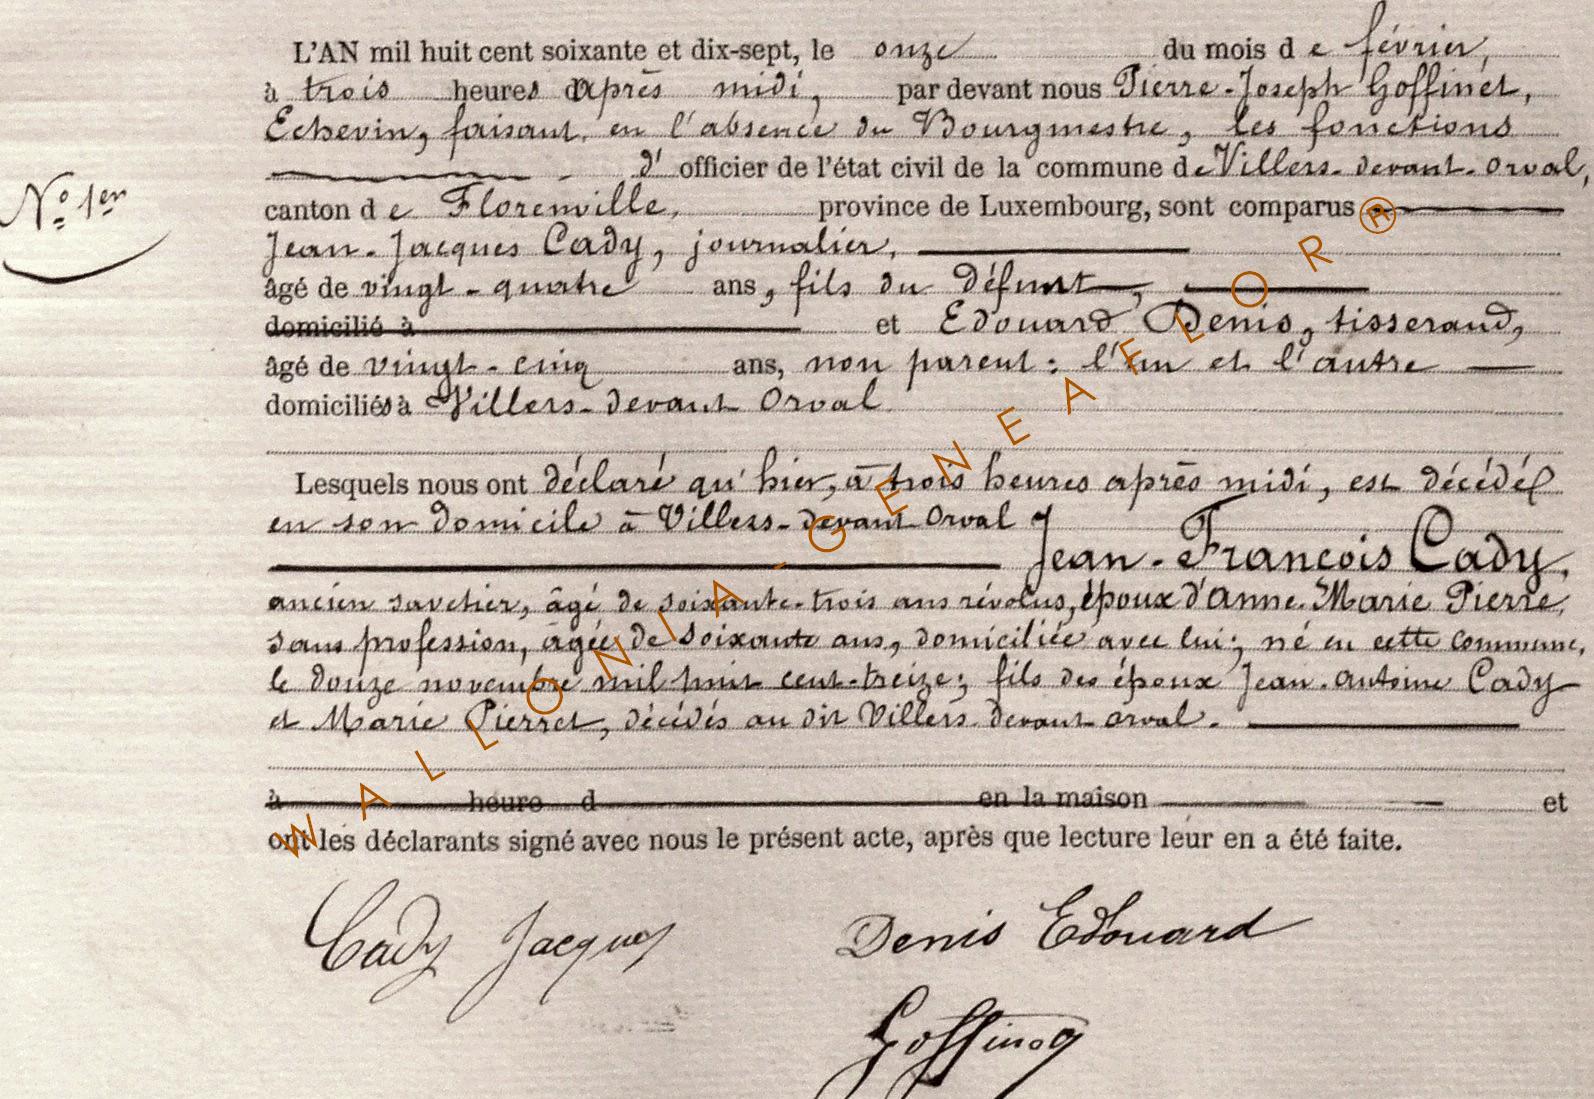 L'AN mil huit cent soixante et dix-sept, le onze du mois de février,
à trois heures après midi, par devant nous Pierre-Joseph Goffinet,
Echevin, faisant, en l'absence du Bourgmestre, les fonctions
d'officier de l'état civil de la commune de Villers-devant-Orval,
N° 1er
canton de Florenville, province de Luxembourg, sont comparus
Jean-Jacques Cady, journalier,
âgé de vingt-quatre ans, fils du défunt,
domicilié à et Edouard Denis, tisserand,
âgé de vingt-cinq ans, non parent: l'un et l'autre
domiciliés à Villers-devant Orval
Lesquels nous ont déclaré qu'hier, à trois heures après midi, est décédé
en son domicile à Villers-devant Orval
Jean-François Cady,
ancien savetier, âgé de soixante-trois ans révolus, époux d'Anne-Marie Pierre,
sans profession, âgée de soixante ans, domiciliée avec lui; né en cette commune,
le douze novembre mil huit cent-treize; fils des époux Jean-Antoine Cady
et Marie Pierret, décédés au dit Villers devant Orval.
à heure d en la maison et
ont les déclarants signé avec nous le présent acte, après que lecture leur en a été faite.
Cady Jacques Denis Edouard
WALLONIA-GENEAFLOR®